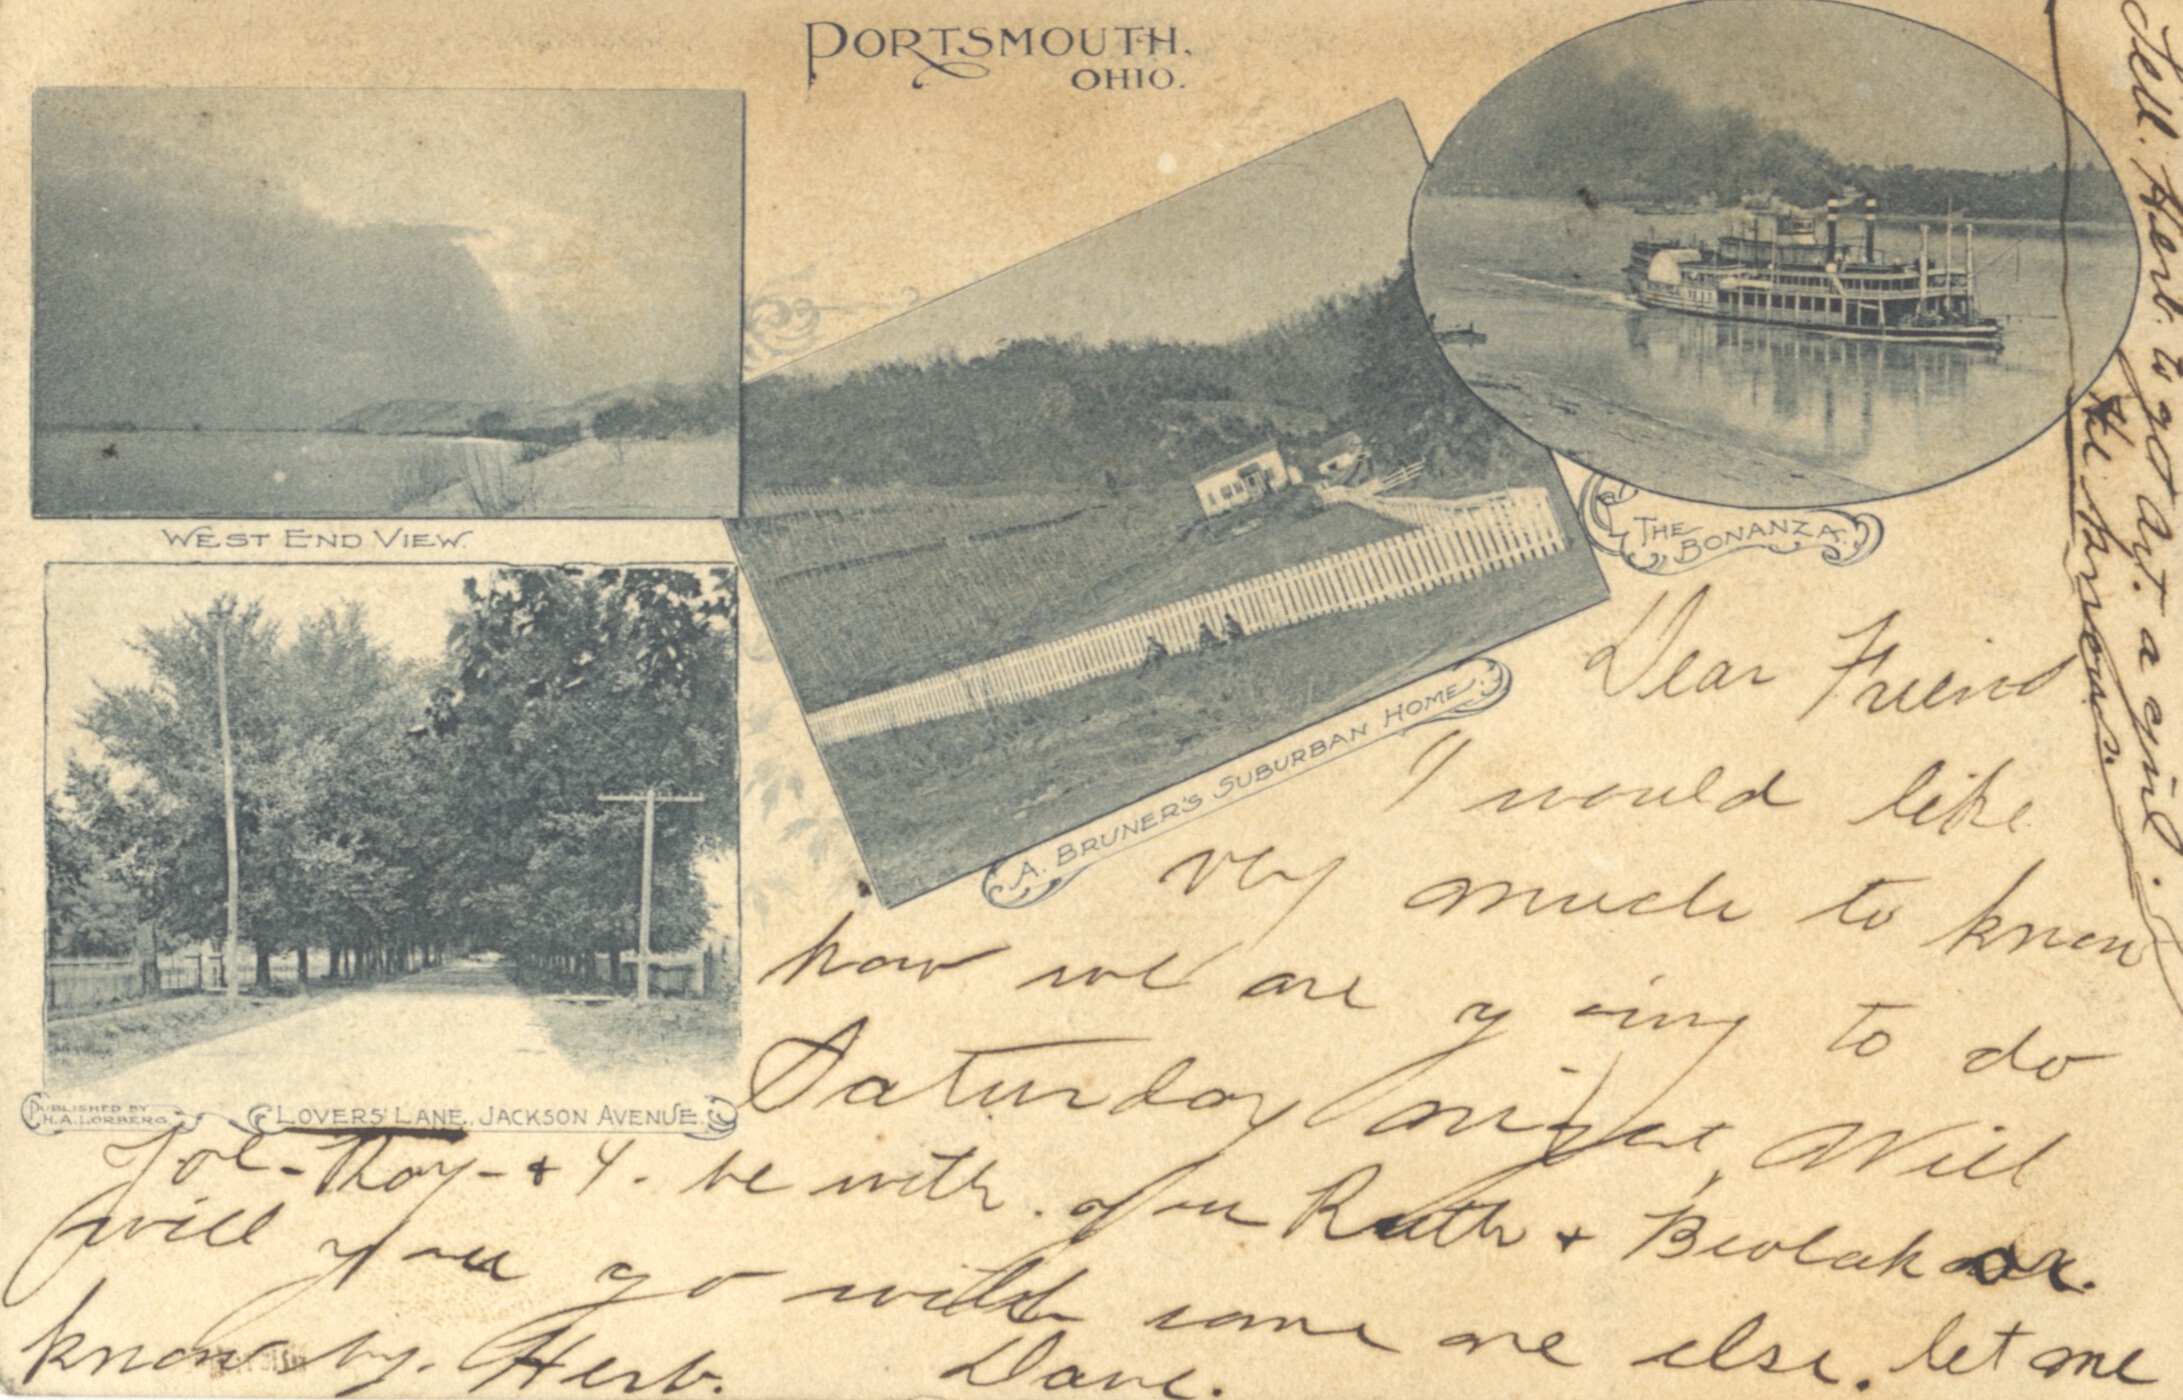 PORTSMOUTH,
OHIO.
WEST END VIEW.
THE
BONANZA.
A. BRUNER'S SUBURBAN HOME.
PUBLISHED BY
H. A. LORBERG.
LOVERS' LANE, JACKSON AVENUE.
Dear Friend
I would like
very much to know
how we are going to do
Saturday night, Will
Joe - Thoy - & I. be with you Ruth & Beulah or.
will you go with some one else. let me
know by. Herb. Dave.
Tell. Herb. to get Art. a girl.